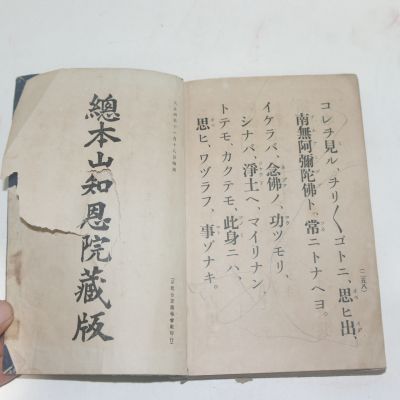 (二五八)
コレヲ見ル、ヲリ〳〵ゴトニ、思ヒ出、
南無阿彌陀佛ト、常ニトナヘヨ。
イケラバ、念佛ノ、功ツモリ、
シナバ、淨土ヘ、マイリナン、
トテモ、カクテモ、此身ニハ、
思ヒ、ワヅラフ、事ゾナキ。
總本山知恩院藏版